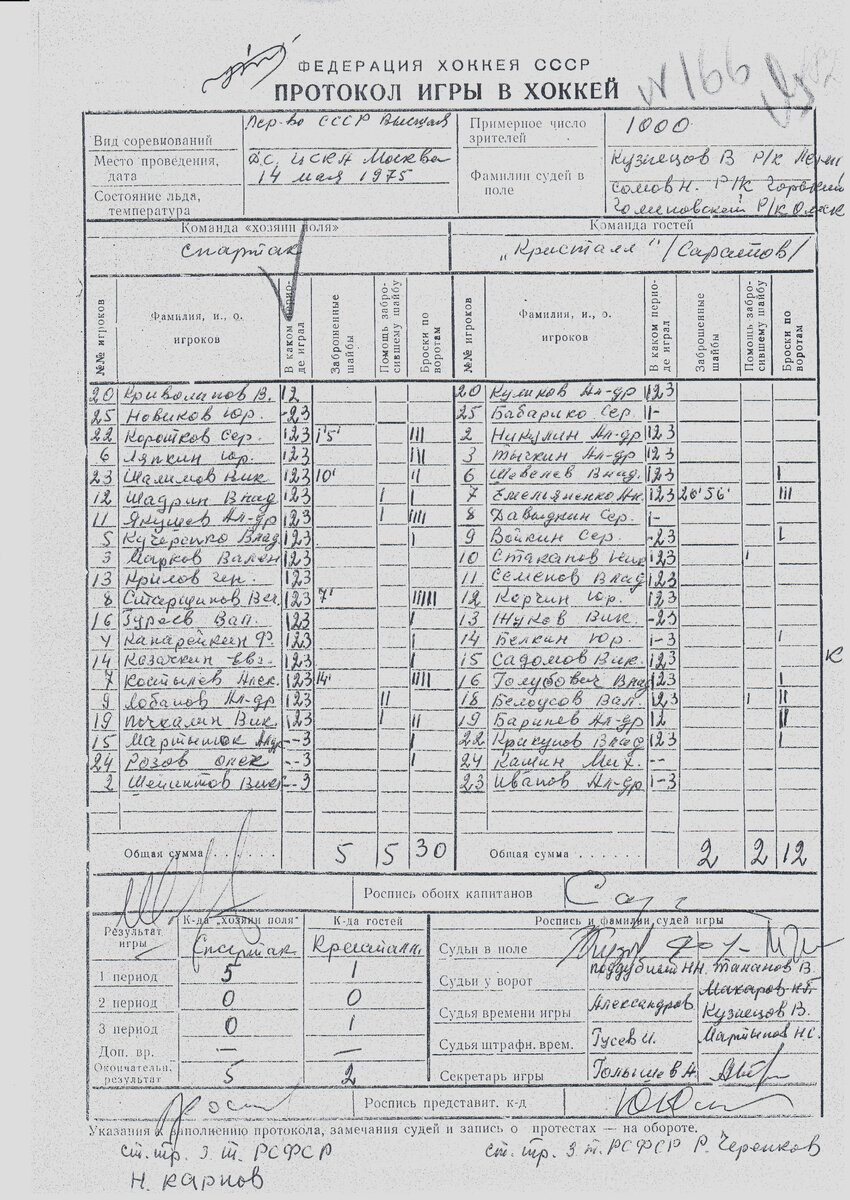 ФЕДЕРАЦИЯ ХОККЕЯ СССР
ПРОТОКОЛ ИГРЫ В ХОККЕЙ
N 166
Вид соревнований Пер-во СССР Высшая
Примерное число зрителей 1000
Место проведения, дата Д.С. ЦСКА Москва 14 мая 1975
Фамилии судей в поле Кузнецов В Р/к
Сомов Н. Р/К Горький
Р/К Омск
Состояние льда, температура
Команда «хозяин поля» Команда гостей
Спартак „Кристалл" /Саратов/
№№ игроков Фамилия, и., о. игроков В каком периоде играл Заброшенные шайбы Помощь забросившему шайбу Броски по воротам №№ игроков Фамилия, и., о. игроков В каком периоде играл Заброшенные шайбы Помощь забросившему шайбу Броски по воротам
20 Криволапов В. 12 20 Куликов Ал-др 123
25 Новиков Юр. -23 25 Бабарико Сер. 1-
22 Коротков Сер. 123 1'5' III 2 Никулин Ал-др 123
6 Ляпкин Юр. 123 III 3 Тычкин Ал-др 123
23 Шалимов Вик 123 10' II 6 Шевелев Влад. 123 I
12 Шадрин Влад 123 I I 7 Емельяненко Ал. 123 20' 56' III
11 Якушев Ал-др 123 I IIII 8 Давыдкин Сер. 1-
5 Кучеренко Влад 123 I 9 Войкин Сер. -23 I
3 Марков Вален 123 10 Стаканов Ник 123 I
13 Крылов Ген. 123 11 Семенов Влад 123
8 Старшинов Вяч. 123 7' IIIII 12 Корчин Юр. 123
16 Гуреев Вал. 123 I 13 Жуков Вик. -23
4 Канарейкин Ф. 123 I 14 Белкин Юр. 1-3 I
14 Казачкин Евг. 123 I 15 Садомов Вик. 123
7 Костылев Алек. 123 14' IIII 16 Голубович Влад 123 I
9 Лобанов Ал-др 123 II 18 Белоусов Вал. 123 I II
19 Пачкалин Вик. 123 I II 19 Баринев Ал-др 12 II
15 Мартынюк Ал-др --3 I 22 Крикунов Влад 123 I
24 Розов --3 I 24 Кашин Мих. --
2 --3 23 Иванов Ал-др 1-3
К
Общая сумма . . . . . . 5 5 30 Общая сумма . . . . . . 2 2 12
Роспись обоих капитанов
Результат игры К-да „хозяин поля" К-да гостей Роспись и фамилии судей игры
Спартак Кристалл
Судьи в поле
1 период 5 1
Судьи у ворот Таланов В
Макаров
2 период 0 0
Судья времени игры Александров Кузнецов В.
3 период 0 1
Судья штрафн. врем. Гусев И. Мартынов Н.С.
Доп. вр. — —
Окончательн. результат 5 2
Секретарь игры Голышев А.
Роспись представит. к-д
Указания к заполнению протокола, замечания судей и запись о протестах — на обороте.
Ст. тр. З.т. РСФСР
Н. Карпов
Ст. тр. З.т. РСФСР Р. Черенков